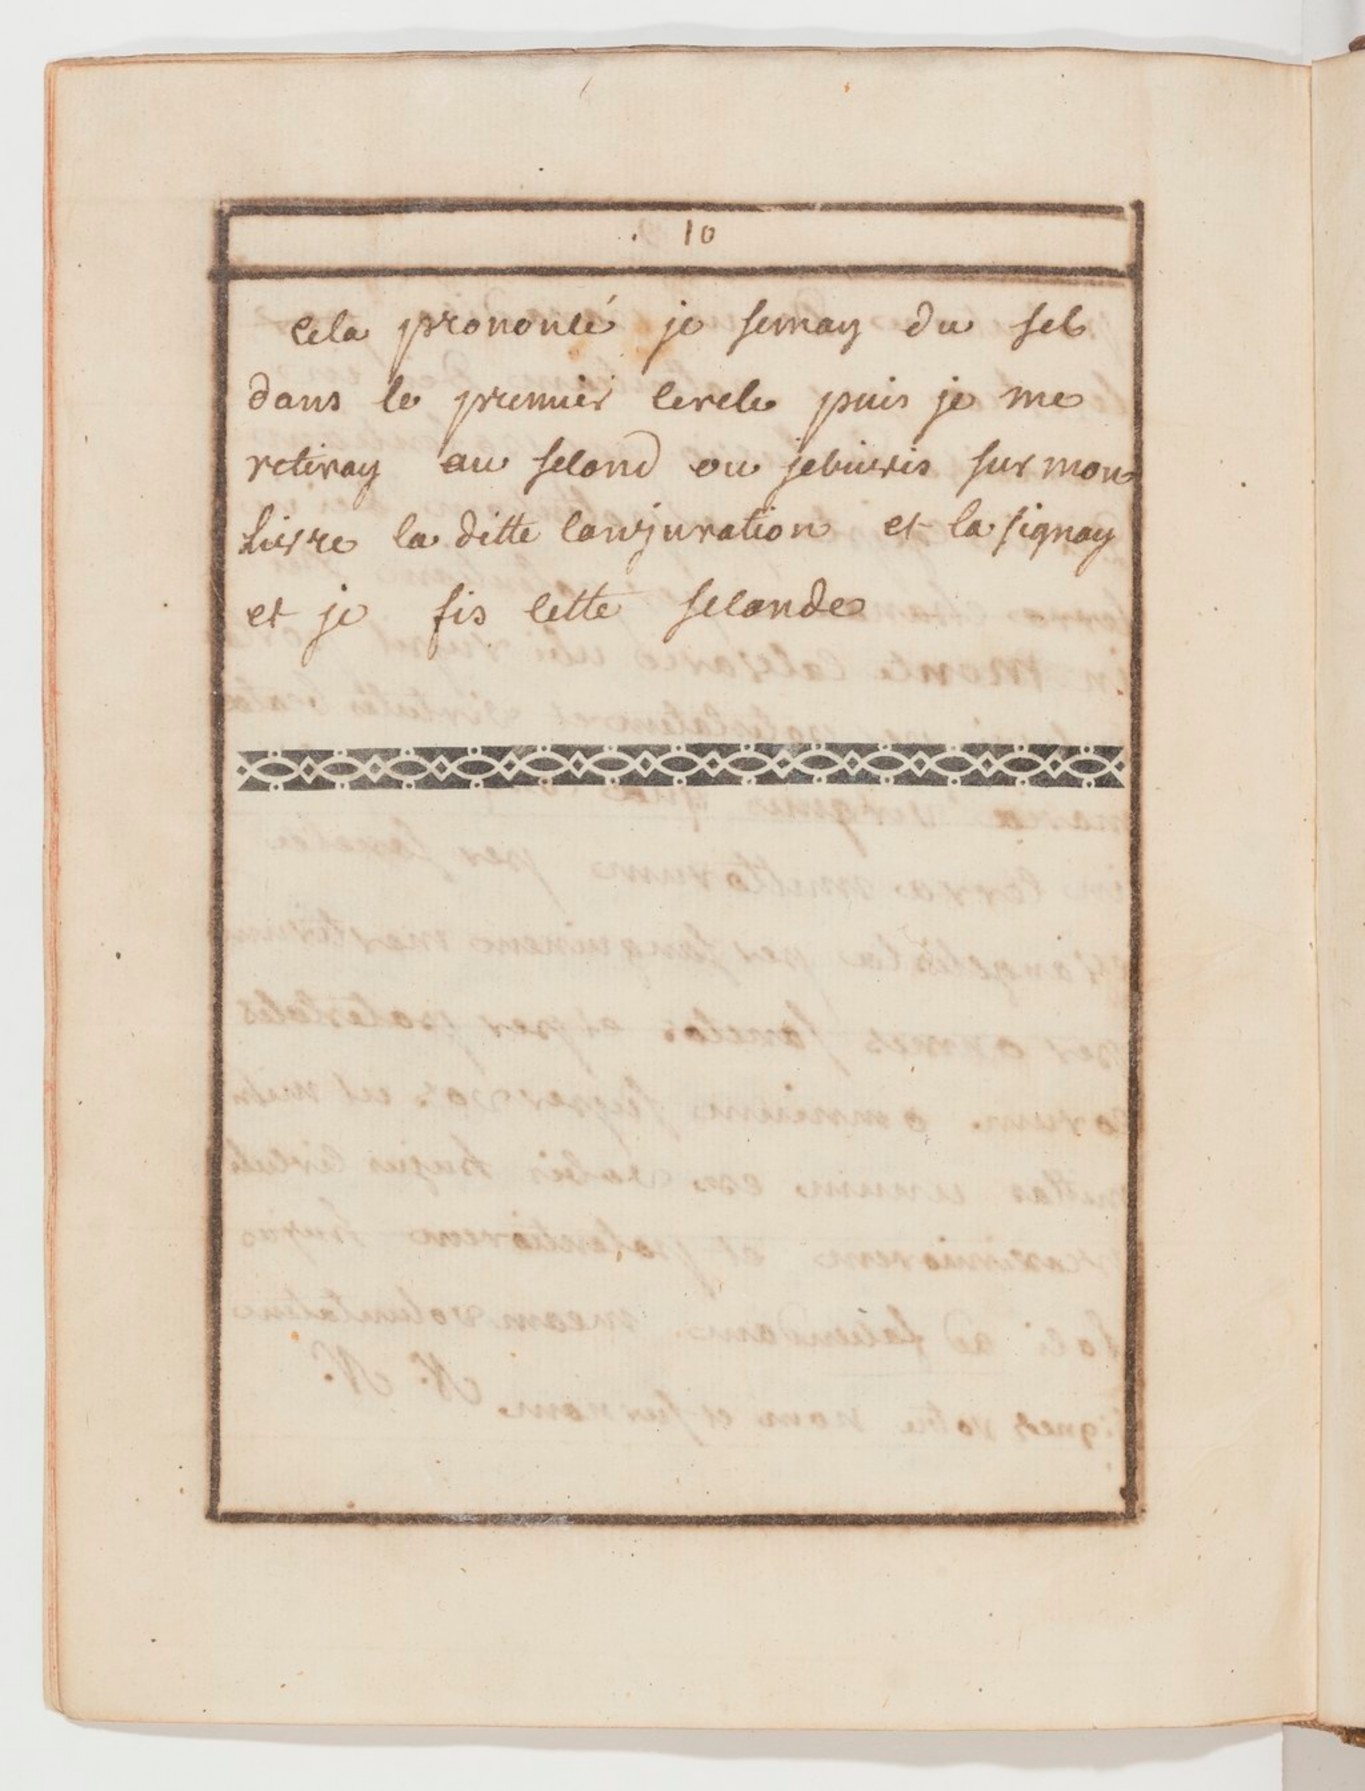 10
Cela prononcé je semay du sel
dans le premier cercle puis je me
retiray au second ou jebuivis sur mon
livre la ditte conjuration et la signay
et je fis cette seconde